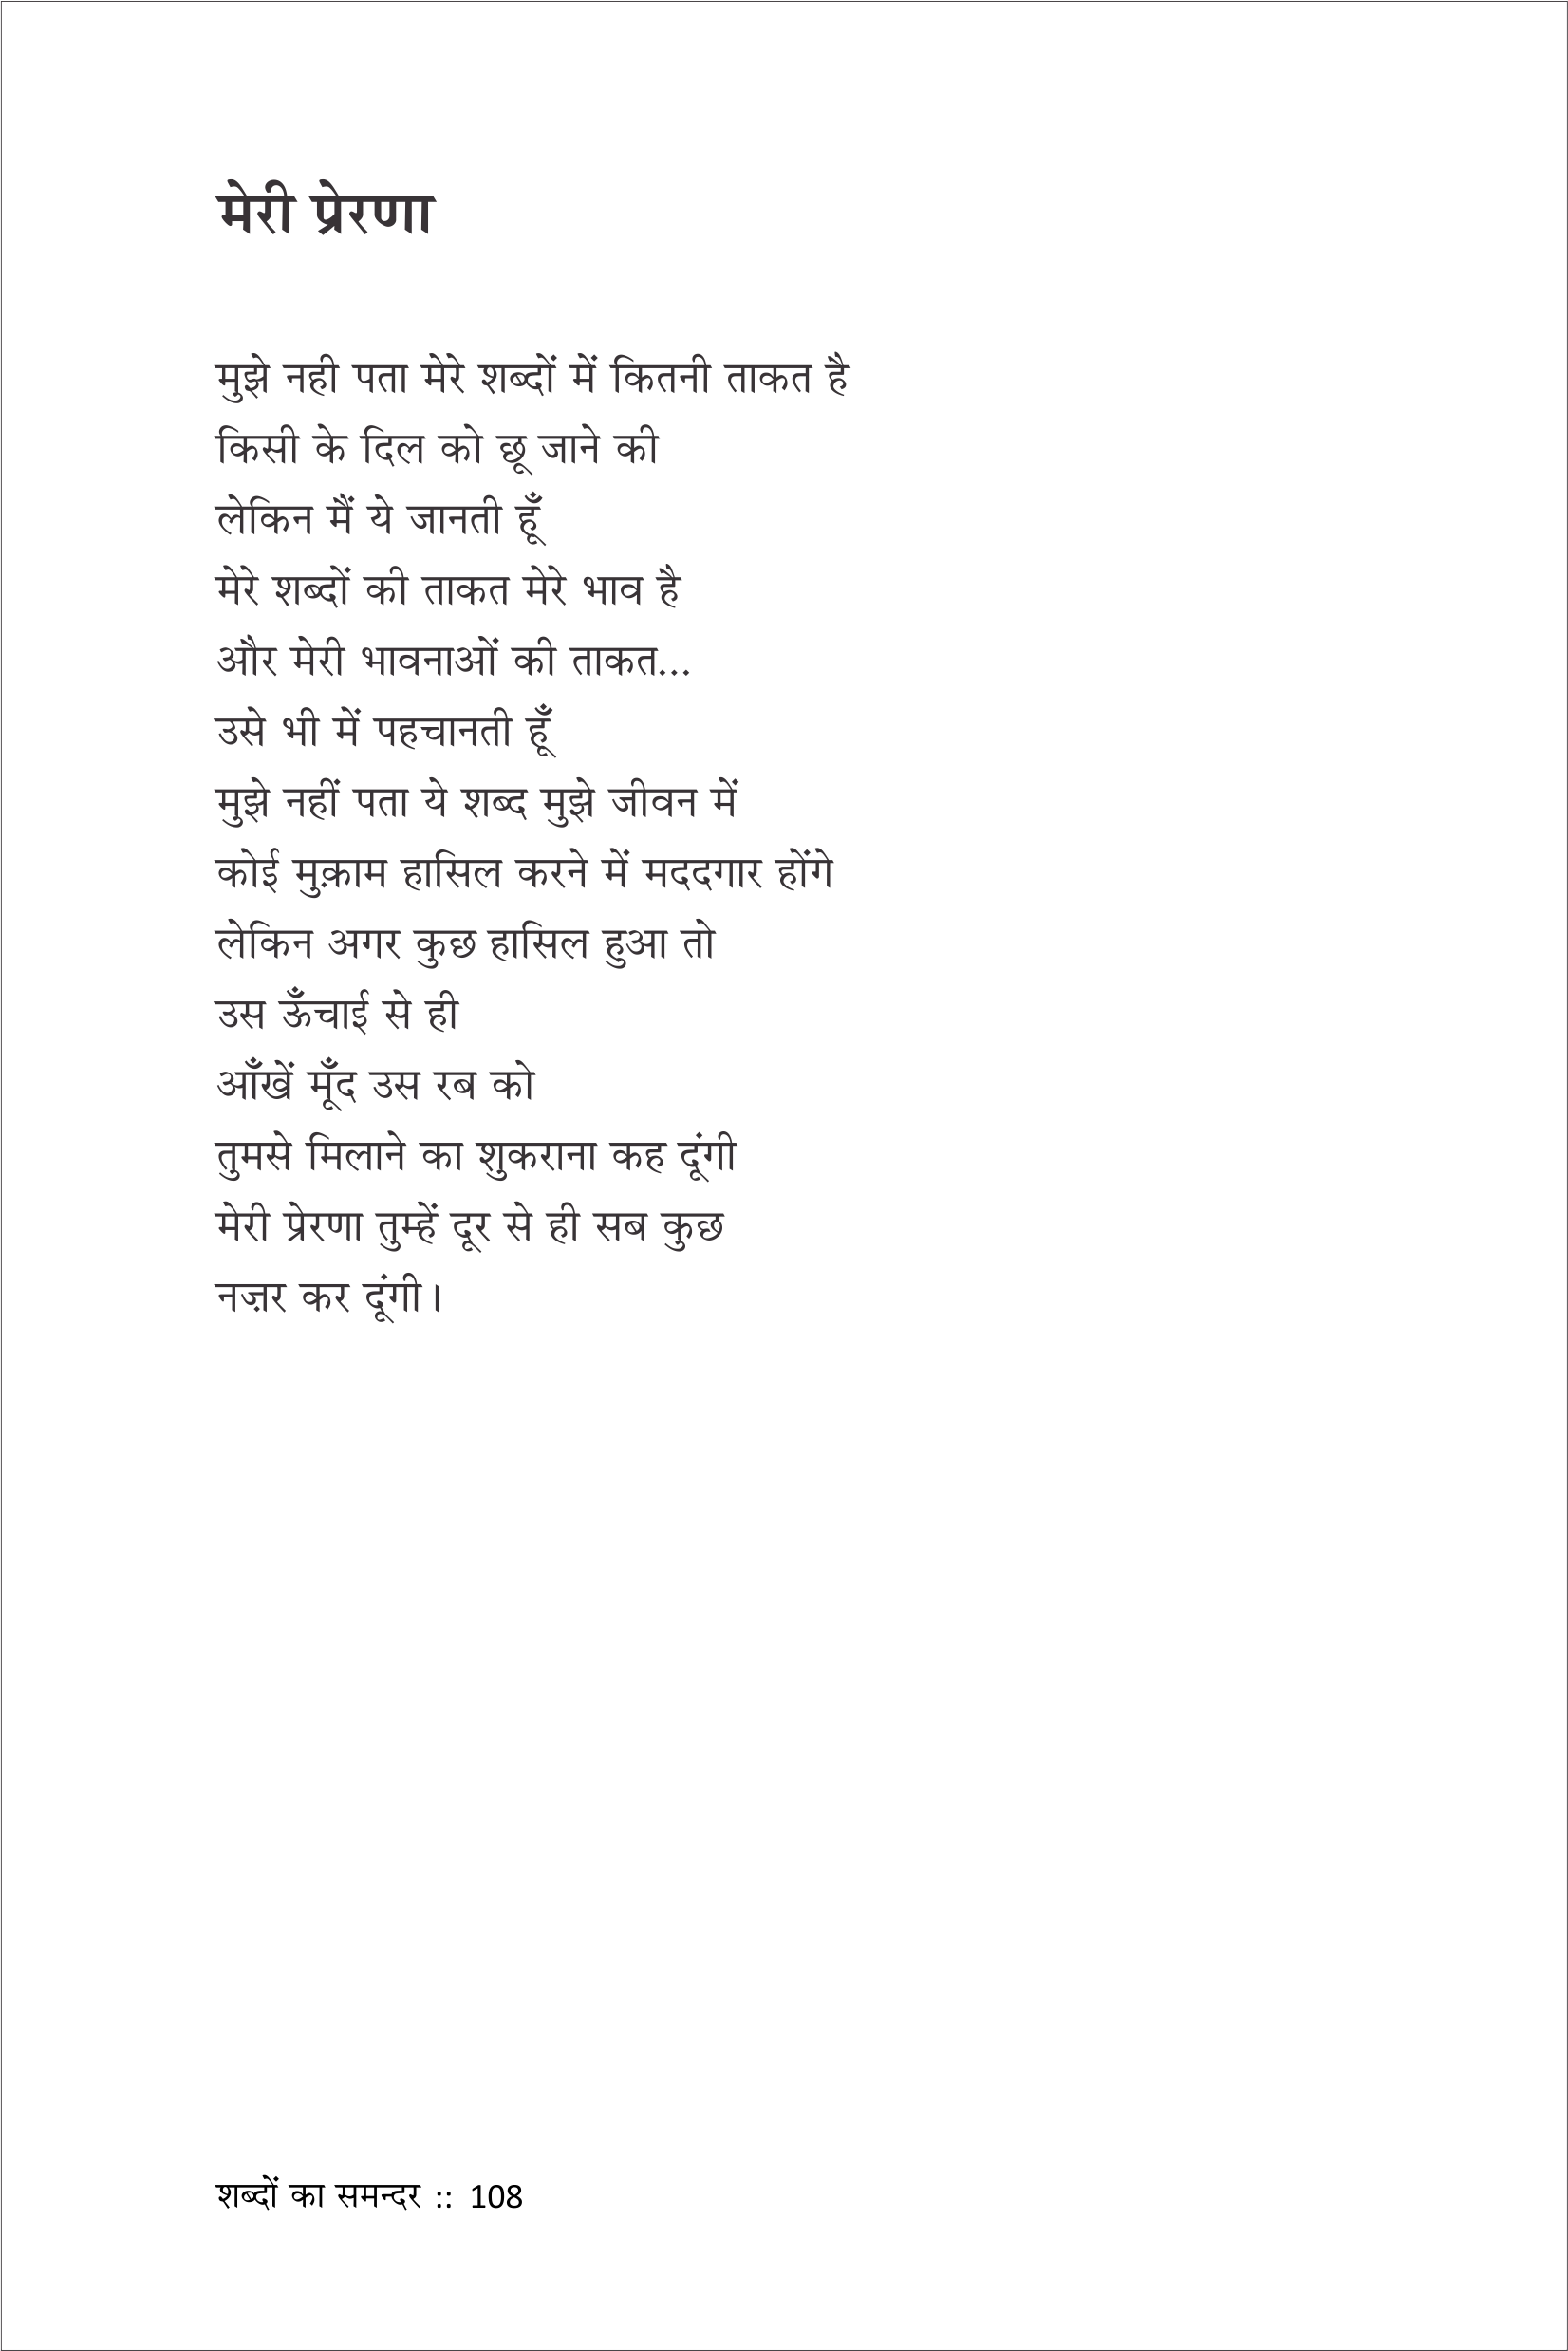 मेरी प्रेरणा
मुझे नही पता मेरे शब्दों में कितनी ताकत है
किसी के दिल को छू जाने की
लेकिन मैं ये जानती हूँ
मेरे शब्दों की ताकत मेरे भाव है
और मेरी भावनाओं की ताकत...
उसे भी में पहचानती हूँ
मुझे नहीं पता ये शब्द मुझे जीवन में
कोई मुक़ाम हासिल करने में मददगार होंगे
लेकिन अगर कुछ हासिल हुआ तो
उस ऊँचाई से ही
आँखें मूँद उस रब को
तुमसे मिलाने का शुकराना कह दूंगी
मेरी प्रेरणा तुम्हें दूर से ही सब कुछ
नज़र कर दूंगी।
शब्दों का समन्दर :: 108